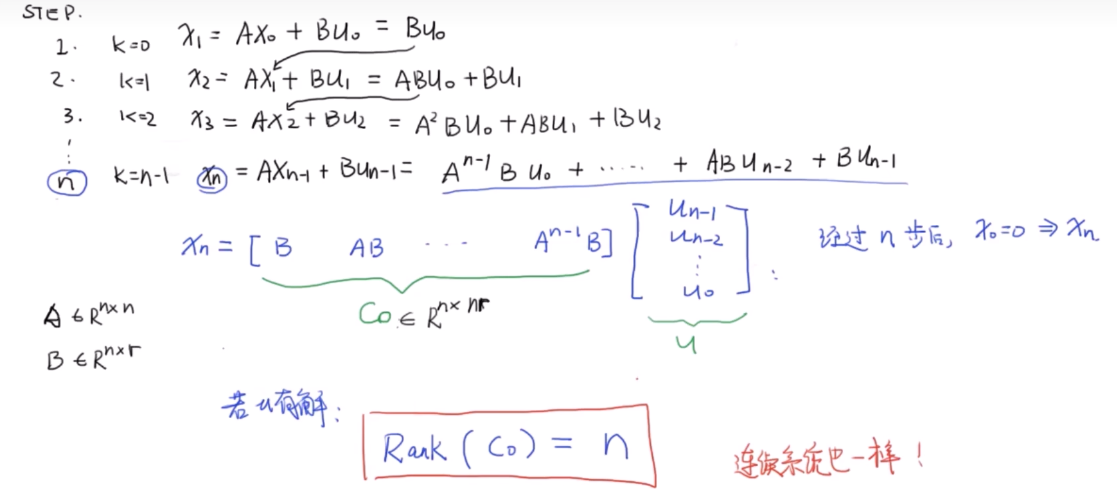 STEP.
1. k=0 x₁ = Ax₀ + Bu₀ = Bu₀
2. k=1 x₂ = Ax₁ + Bu₁ = ABu₀ + Bu₁
3. k=2 x₃ = Ax₂ + Bu₂ = A²Bu₀ + ABu₁ + Bu₂
⋮
n k=n-1 xₙ = Axₙ₋₁ + Buₙ₋₁ = Aⁿ⁻¹Bu₀ + ····· + ABuₙ₋₂ + Buₙ₋₁
xₙ = [ B AB ··· Aⁿ⁻¹B] [ uₙ₋₁ uₙ₋₂ ⋮ u₀ ] : 经过 n 步后, x₀=0 ⇒ xₙ
A ∈ Rⁿˣⁿ
Co ∈ Rⁿˣⁿʳ
u
B ∈ Rⁿˣʳ
若 u 有解:
Rank ( Co ) = n
连续系统也一样!